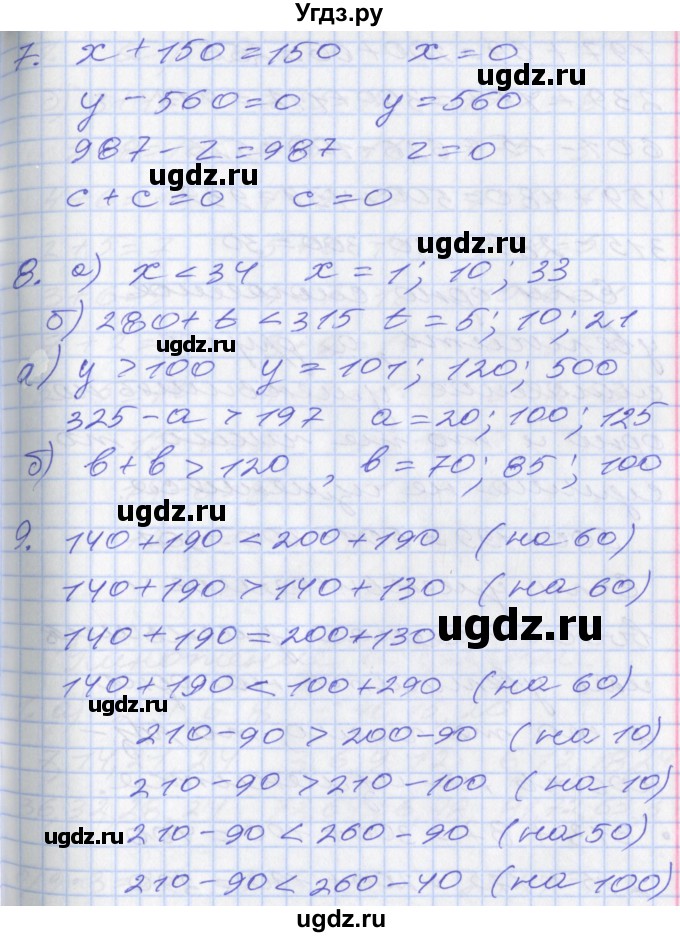 Угдз.ру
7. x + 150 = 150 x = 0
ugdz.ru
y - 560 = 0 y = 560
987 - z = 987 z = 0
ugdz.ru
c + c = 0 c = 0
ugdz.ru
8. а) x < 34 x = 1; 10; 33
б) 280 + t < 315 t = 5; 10; 21
ugdz.ru
а) y > 100 y = 101; 120; 500
325 - a > 197 a = 20; 100; 125
б) b + b > 120, b = 70; 85; 100
ugdz.ru
9. 140 + 190 < 200 + 190 (на 60)
140 + 190 > 140 + 130 (на 60)
140 + 190 = 200 + 130
ugdz.ru
140 + 190 < 100 + 290 (на 60)
ugdz.ru
210 - 90 > 200 - 90 (на 10)
210 - 90 > 210 - 100 (на 10)
ugdz.ru
210 - 90 < 260 - 90 (на 50)
210 - 90 < 260 - 40 (на 100)
ugdz.ru